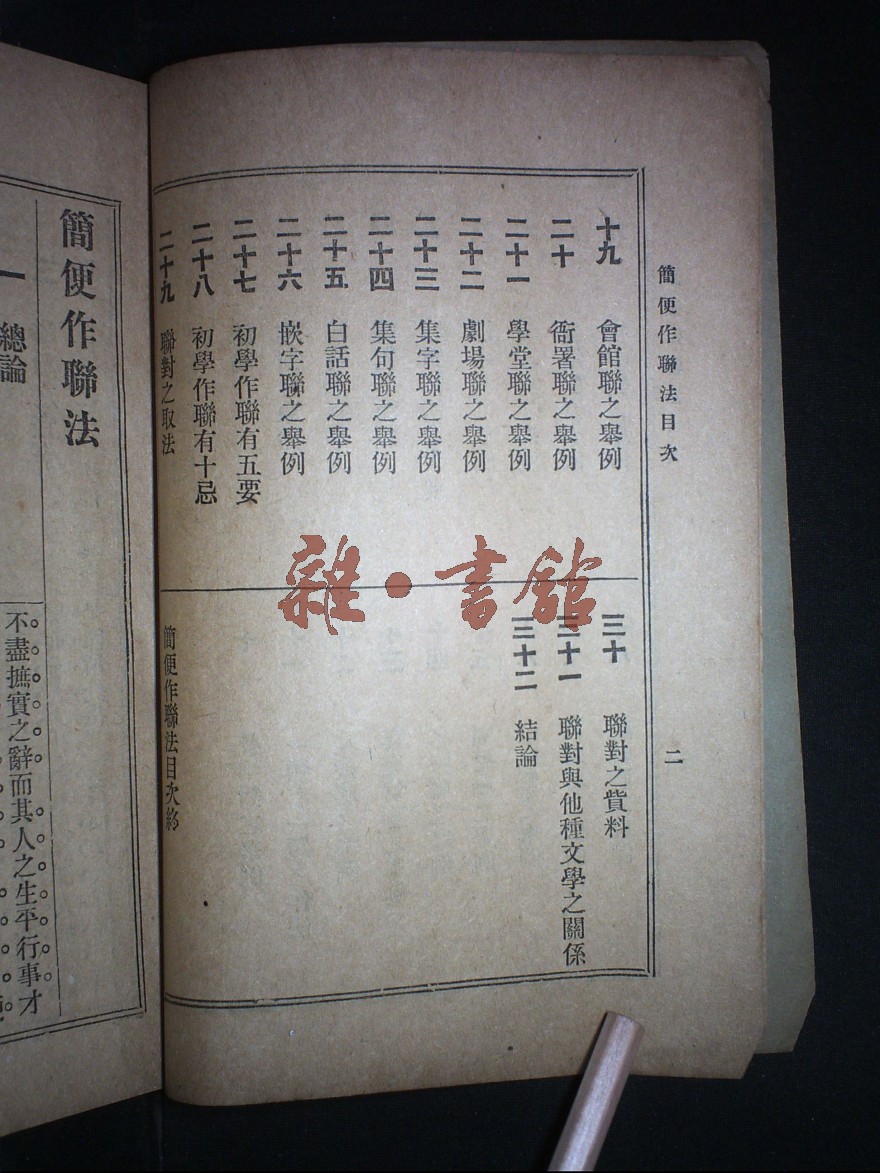 簡便作聯法目次
二
十九 會館聯之舉例
二十 衙署聯之舉例
二十一 學堂聯之舉例
二十二 劇場聯之舉例
二十三 集字聯之舉例
二十四 集句聯之舉例
二十五 白話聯之舉例
二十六 嵌字聯之舉例
二十七 初學作聯有五要
二十八 初學作聯有十忌
二十九 聯對之取法
三十 聯對之貲料
三十一 聯對與他種文學之關係
三十二 結論
簡便作聯法目次終
簡便作聯法
一 總論
不盡摭實之辭而其人之生平行事才
雜·書館